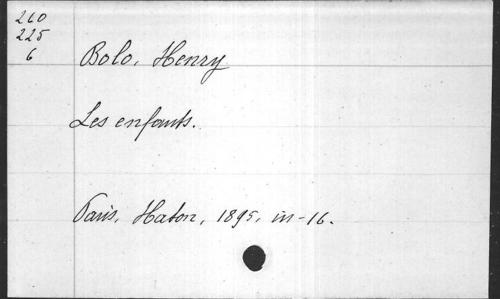 260
225
6
Bolo, Henry
Les enfants.
Paris, Haton, 1895, in-16.